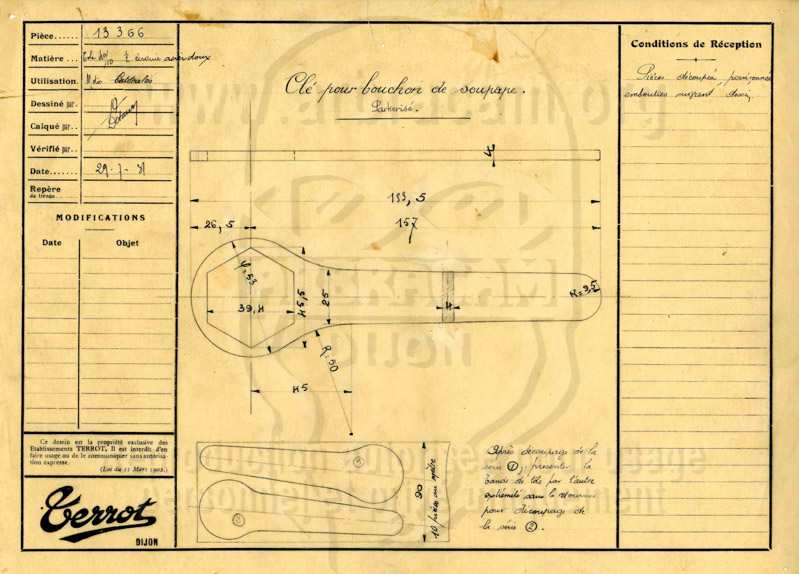 Pièce...... 13366
Matière... Tole 40/10 ½ sérieuse acier doux
Utilisation. M. des Culbutés
Dessiné par..
Calqué par..
Vérifié par..
Date....... 29-7-31
Repère
de tirage
MODIFICATIONS
Date Objet
Ce dessin est la propriété exclusive des
Etablissements TERROT. Il est interdit d'en
faire usage ou de le communiquer sans autorisa-
tion expresse.
(Loi du 11 Mars 1902.)
Terrot
DIJON
Clé pour bouchon de soupape.
Parkerisé.
4
133, 5
26, 5
157
φ=53
39,4
45,5
25
4
R=9,5
R=50
45
1
2
90
10 pièces au mètre
Après découpage de la
série 1, présenter la
bande de tôle par l'autre
extrémité sans la retourner
pour découpage de
la série 2.
Conditions de Réception
Pièces découpées, poinçonnées
embouties suivant dessin.
DIJON